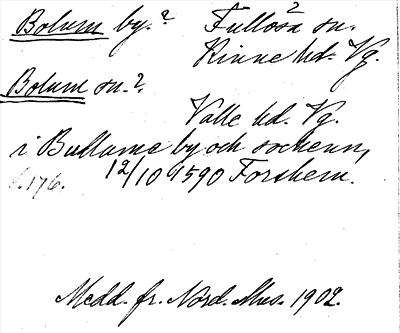 Bolum by.? Fullösa sn.
Kinne hd. Vg.
Bolum sn.?
Valle hd. Vg.
i Bullume by och sochenn,
s. 176. 12/10 1590 Forshem.
Medd. fr. Nord. Mus. 1902.